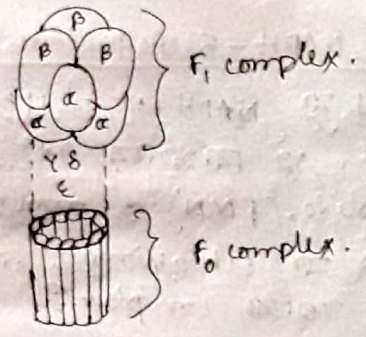 β
β β
α
α α
F₁ complex.
γ δ
ε
F₀ complex.